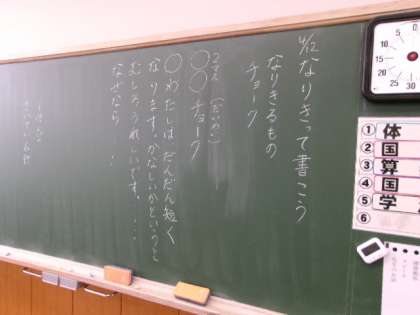 4/12 なりきって書こう
なりきるもの
チョーク
2マス (だいめい)
○○チョーク
○わたしは だんだん短く
なります。かなしいかというと
むしろうれしいです。…
なぜなら…
① 体
② 国
③ 算
④ 国
⑤ 学
⑥